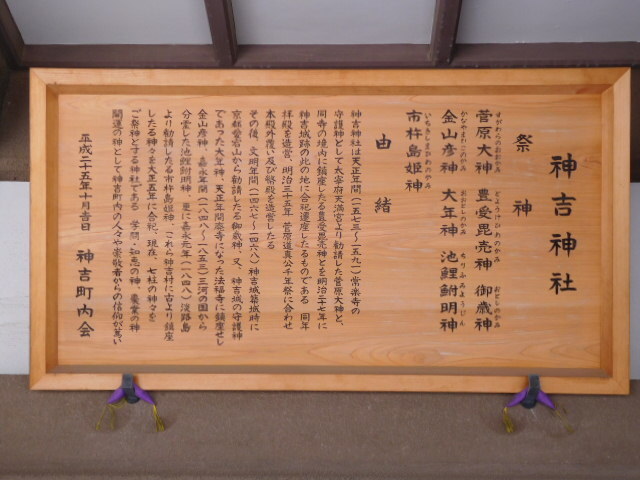 神吉神社
祭神
菅原大神 豊受毘売神 御歳神
すがわらのおおかみ とようけひめのかみ おとしのかみ
金山彦神 大年神 池鯉鮒明神
かなやまひこのかみ おおとしのかみ ちりふみょうじん
市杵島姫神
いちきしまひめのかみ
由緒
神吉神社は天正年間(一五七三〜一五九一)常楽寺の
守護神として太宰府天満宮より勧請した菅原大神と、
同寺の境内に鎮座したる豊受毘売神とを明治二十七年に
神吉城跡の此の地に合祀遷座したるものである 同年
拝殿を造営、明治三十五年 菅原道真公千年祭に合わせ
本殿外覆い及び幣殿を造営したる
その後、文明年間(一四六七〜一四六八)神吉城築城時に
京都愛宕山から勧請したる御歳神、又、神吉城の守護神
であった大年神、天正年間焼寺になった法福寺に鎮座せし
金山彦神、嘉永年間(一八四八〜一八五三)三河の国から
分霊した池鯉鮒明神、更に嘉永元年(一八四八)淡路島
より勧請したる市杵島姫神、これら神吉村に古より鎮座
したる神々を大正五年に合祀、現在、七柱の神々を
ご祭神とする神社である 学問・知恵の神、農業の神
開運の神として神吉町内の人々や崇敬者からの信仰が篤い
平成二十五年十月吉日 神吉町内会